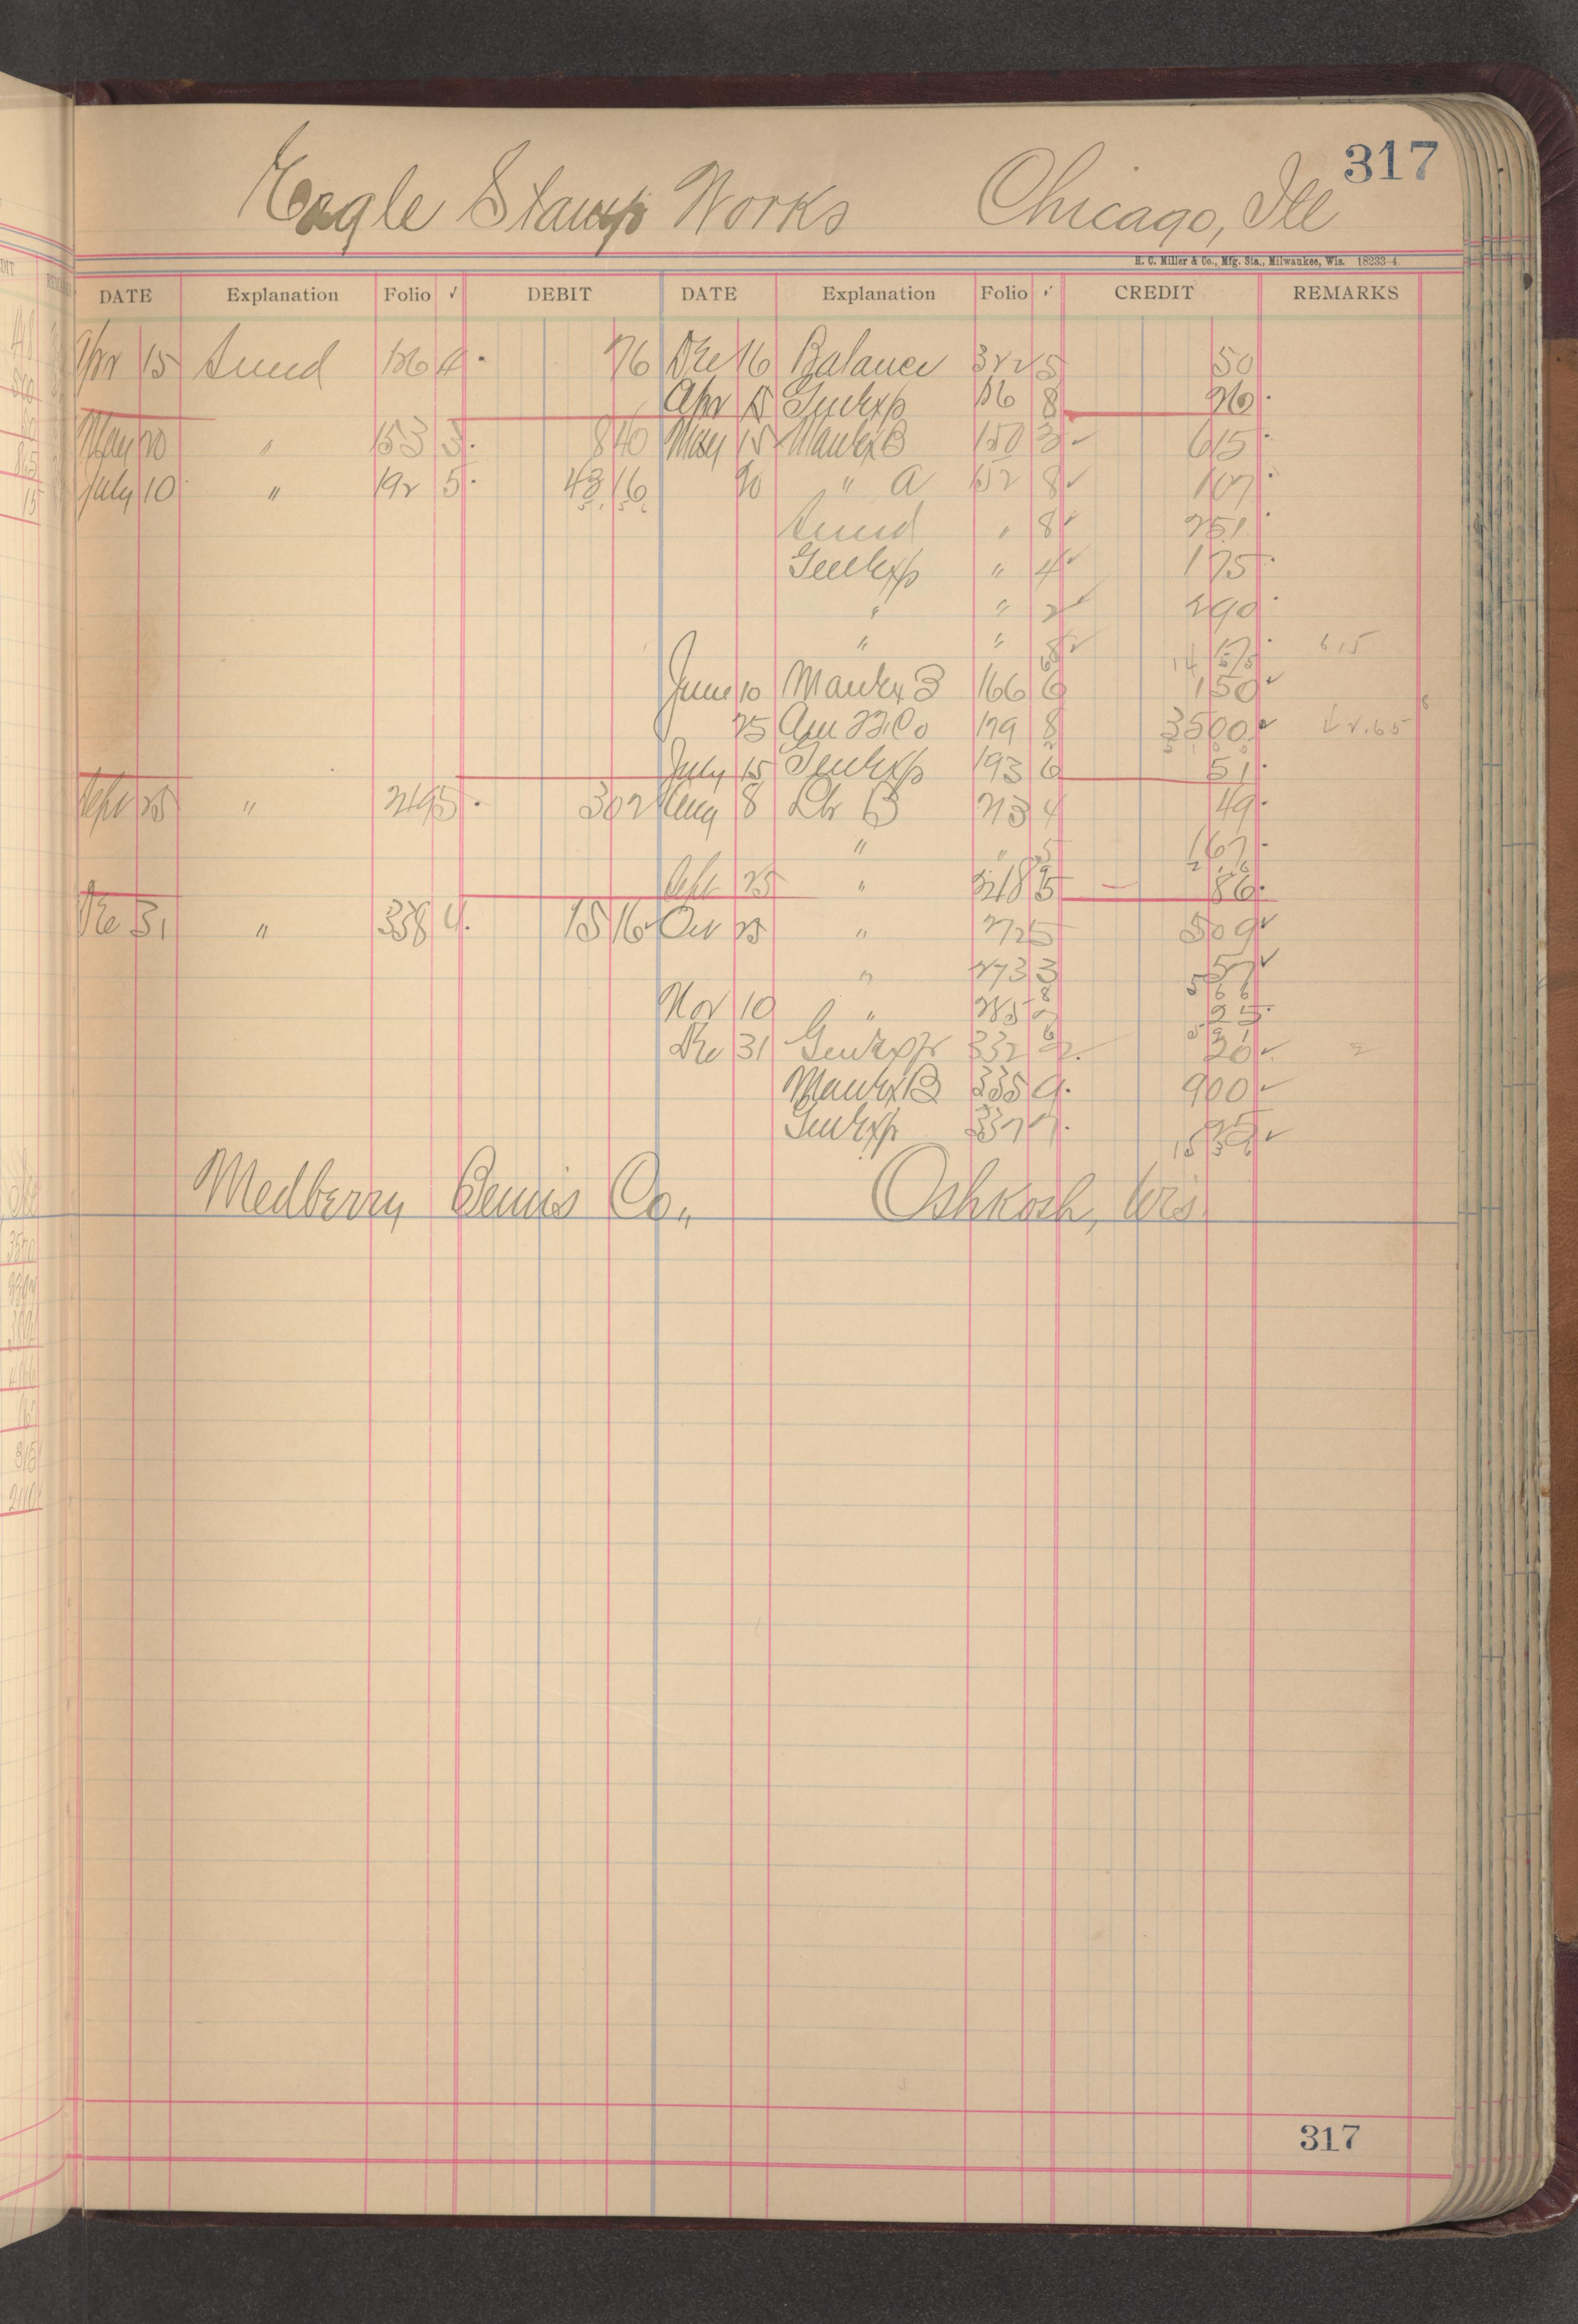 317
Eagle Stamp Works Chicago, Ill
H. C. Miller & Co., Mfg. Sta., Milwaukee, Wis. 18233-4
DATE Explanation Folio ✓ DEBIT DATE Explanation Folio ✓ CREDIT REMARKS
Apr 15 Sund 126 4 76 Dec 16 Balance 322 5 50
Apr 15 GenExp 8 26
May 20 " 153 3 8 40 May 15 ManEx B 150 3 ✓ 6 15
July 10 " 192 5 43 16 20 " A 152 8 ✓ 1 07
Sund " 8 ✓ 2 51
GenExp " 4 ✓ 1 75
" " 2 ✓ 2 90
" " 8 ✓ 17 6 15
14 55
June 10 ManEx B 166 6 1 50 ✓
25 179 8 35 00 ✓ 2.65
July 15 GenExp 193 6 51
Sept 25 " 249 5 3 02 Aug 8 B 213 4 49
" " 5 1 67
Sept 25 " 248 5 86
Dec 31 " 338 4 15 16 Oct 25 " 272 5 5 09 ✓
" 273 3 57 ✓
5 66
Nov 10 " 285 25
Dec 31 GenExp 332 2 20 ✓
ManEx B 335 9 9 00 ✓
GenExp 337 7 25 ✓
Medberry Bemis Co., Oshkosh, Wis
317